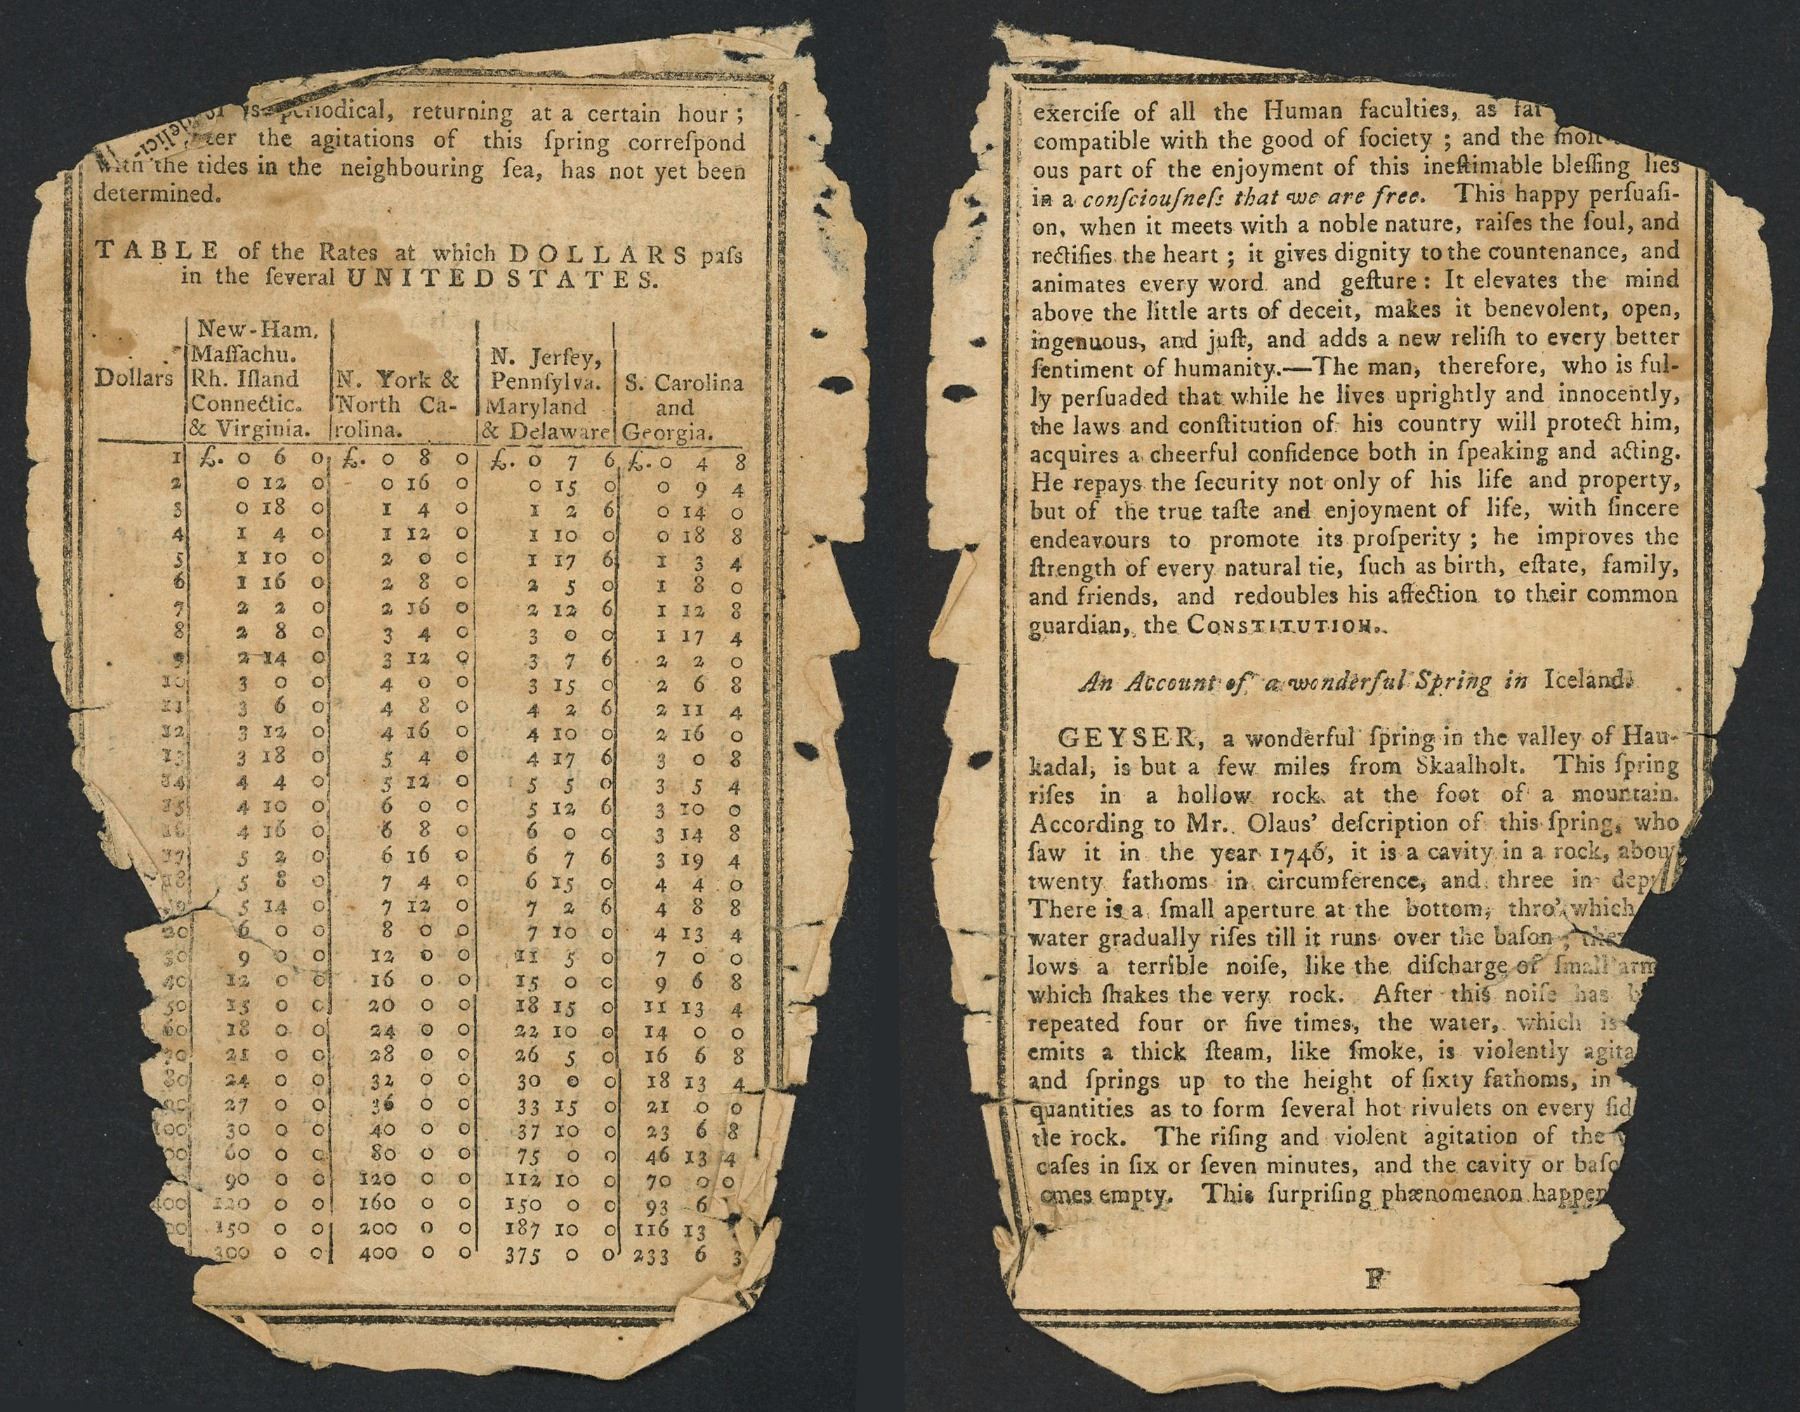 periodical, returning at a certain hour ;
the agitations of this ſpring correſpond
with the tides in the neighbouring ſea, has not yet been
determined.
TABLE of the Rates at which DOLLARS paſs
in the ſeveral UNITED STATES.
Dollars
New-Ham.
Maſſachu.
Rh. Iſland
Connectic.
& Virginia.
N. York &
North Ca-
rolina.
N. Jerſey,
Pennſylva.
Maryland
& Delaware
S. Carolina
and
Georgia.
1 £. 0 6 0 £. 0 8 0 £. 0 7 6 £. 0 4 8
2 0 12 0 0 16 0 0 15 0 0 9 4
3 0 18 0 1 4 0 1 2 6 0 14 0
4 1 4 0 1 12 0 1 10 0 0 18 8
5 1 10 0 2 0 0 1 17 6 1 3 4
6 1 16 0 2 8 0 2 5 0 1 8 0
7 2 2 0 2 16 0 2 12 6 1 12 8
8 2 8 0 3 4 0 3 0 0 1 17 4
9 2 14 0 3 12 0 3 7 6 2 2 0
10 3 0 0 4 0 0 3 15 0 2 6 8
11 3 6 0 4 8 0 4 2 6 2 11 4
12 3 12 0 4 16 0 4 10 0 2 16 0
13 3 18 0 5 4 0 4 17 6 3 0 8
14 4 4 0 5 12 0 5 5 0 3 5 4
15 4 10 0 6 0 0 5 12 6 3 10 0
16 4 16 0 6 8 0 6 0 0 3 14 8
17 5 2 0 6 16 0 6 7 6 3 19 4
18 5 8 0 7 4 0 6 15 0 4 4 0
19 5 14 0 7 12 0 7 2 6 4 8 8
20 6 0 0 8 0 0 7 10 0 4 13 4
30 9 0 0 12 0 0 11 5 0 7 0 0
40 12 0 0 16 0 0 15 0 0 9 6 8
50 15 0 0 20 0 0 18 15 0 11 13 4
60 18 0 0 24 0 0 22 10 0 14 0 0
70 21 0 0 28 0 0 26 5 0 16 6 8
80 24 0 0 32 0 0 30 0 0 18 13 4
90 27 0 0 36 0 0 33 15 0 21 0 0
100 30 0 0 40 0 0 37 10 0 23 6 8
60 0 0 80 0 0 75 0 0 46 13 4
90 0 0 120 0 0 112 10 0 70 0 0
400 120 0 0 160 0 0 150 0 0 93 6
150 0 0 200 0 0 187 10 0 116 13
300 0 0 400 0 0 375 0 0 233 6 3
exerciſe of all the Human faculties, as far
compatible with the good of ſociety ; and the moſt
ous part of the enjoyment of this ineſtimable bleſſing lies
in a conſciouſneſs that we are free. This happy perſuaſi-
on, when it meets with a noble nature, raiſes the ſoul, and
rectifies the heart ; it gives dignity to the countenance, and
animates every word and geſture : It elevates the mind
above the little arts of deceit, makes it benevolent, open,
ingenuous, and juſt, and adds a new reliſh to every better
ſentiment of humanity.—The man, therefore, who is ful-
ly perſuaded that while he lives uprightly and innocently,
the laws and conſtitution of his country will protect him,
acquires a cheerful confidence both in ſpeaking and acting.
He repays the ſecurity not only of his life and property,
but of the true taſte and enjoyment of life, with ſincere
endeavours to promote its proſperity ; he improves the
ſtrength of every natural tie, ſuch as birth, eſtate, family,
and friends, and redoubles his affection to their common
guardian, the CONSTITUTION.
An Account of a wonderful Spring in Iceland.
GEYSER, a wonderful ſpring in the valley of Hau-
kadal, is but a few miles from Skaalholt. This ſpring
riſes in a hollow rock at the foot of a mountain.
According to Mr. Olaus' deſcription of this ſpring, who
ſaw it in the year 1746, it is a cavity in a rock, about
twenty fathoms in circumference, and three in dep
There is a ſmall aperture at the bottom, thro' which
water gradually riſes till it runs over the baſon ; the
lows a terrible noiſe, like the diſcharge of ſmall arm
which ſhakes the very rock. After this noiſe has b
repeated four or five times, the water, which is
emits a thick ſteam, like ſmoke, is violently agita
and ſprings up to the height of ſixty fathoms, in
quantities as to form ſeveral hot rivulets on every ſid
tle rock. The riſing and violent agitation of the
caſes in ſix or ſeven minutes, and the cavity or baſo
omes empty. This ſurpriſing phænomenon happen
F